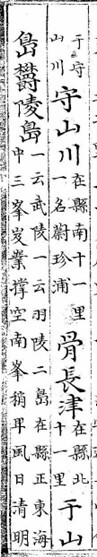 于守
山川
守山川
在縣南十一里
一名蔚珍浦
骨長津
在縣北
十一里
于山
島欝陵島
一云武陵一云羽陵二島在縣正東海
中三峯岌嶪撑空南峯稍卑風日清明